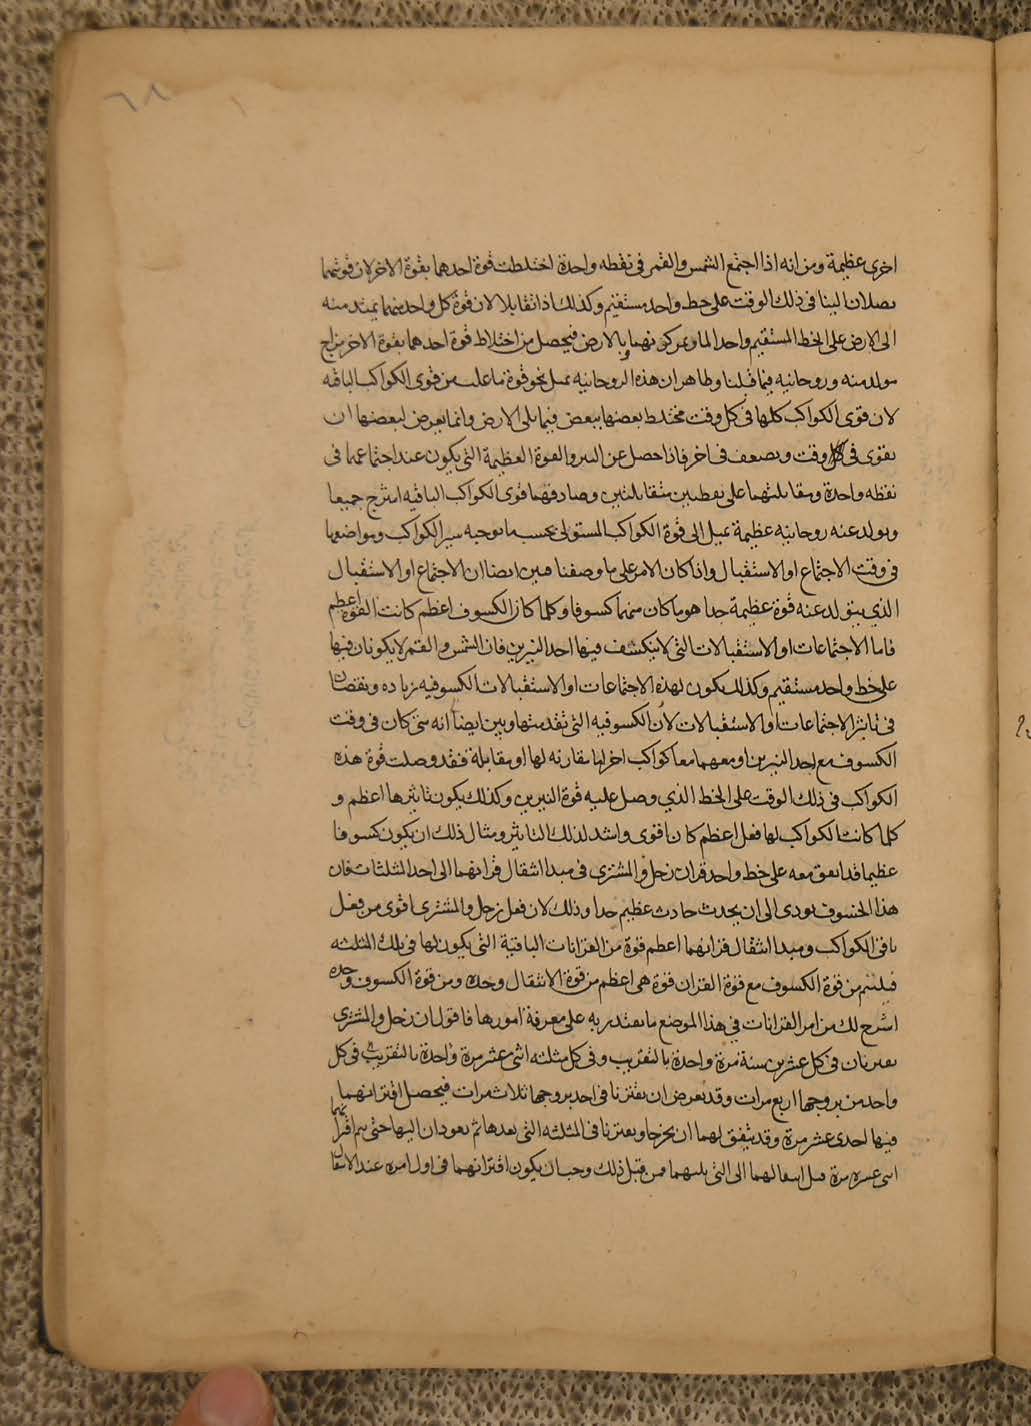 ٦٨
اخرى عظيمة ومن انه اذا اجتمع الشمس والقمر فى نقطه واحدة اختلطت قوة احدهما بقوة الاخر لان قوتهما
تصلان الينا فى ذلك الوقت على خط واحد مستقيم وكذلك اذا تقابلا لان قوة كل واحد منهما يمتد منه
الى الارض على الخط المستقيم واحد المار بمركزيهما وبالارض فيحصل من اختلاط قوة احدهما بقوة الاخر مزاج
مولد منه وروحانيه فيما قبلنا وظاهر ان هذه الروحانيه تميل نحو قوة ما غلب من قوى الكواكب الباقيه
لان قوى الكواكب كلها فى كل وقت مختلط بعضها ببعض فيما يلى الارض وانما يعرض لبعضها ان
يقوى فى كل وقت ويضعف فى اخر فاذا حصل عن النيرين القوة العظيمة التى يكون عند اجتماعهما فى
نقطه واحدة ومقابلتهما على نقطتين متقابلتين وصادفهما قوى الكواكب الباقيه امتزج جميعا
وتولد عنه روحانيه عظيمة تميل الى قوة الكواكب المستولى بحسب ما توجبه سير الكواكب ومواضعها
فى وقت الاجتماع او الاستقبال واذا كان الامر على ما وصفنا فبين ايضا ان الاجتماع او الاستقبال
الذي يتولد عنه قوة عظيمة جدا هو ما كان منهما كسوفا وكلما كان الكسوف اعظم كانت القوة اعظم
فاما الاجتماعات او الاستقبالات التى لا ينكشف فيها احد النيرين فان الشمس والقمر لا يكونان فيها
على خط واحد مستقيم وكذلك يكون لهذه الاجتماعات او الاستقبالات الكسوفيه زياده ونقصان
فى تاثير الاجتماعات او الاستقبالات لان الكسوفيه التى تقدمتها وبين ايضا انه متى كان فى وقت
الكسوف مع احد النيرين او معهما معا كواكب اخر اما مقارنه لها او مقابلة فقد وصلت قوة هذه
الكواكب فى ذلك الوقت على الخط الذي وصل عليه قوة النيرين وكذلك يكون تاثيرها اعظم و
كلما كانت الكواكب لها فعل اعظم كان اقوى واشد لذلك التاثير ومثال ذلك ان يكون كسوفا
عظيما قد اتفق معه على خط واحد قران زحل والمشترى فى مبدا انتقال قرانهما الى احد المثلثات فان
هذا الخسوف يودى الى ان يحدث حادث عظيم جدا وذلك لان فعل زحل والمشترى اقوى من فعل
باقى الكواكب ومبدا انتقال قرانهما اعظم قوة من القرانات الباقية التى يكون لها فى تلك المثلثه
فيلتئم من قوة الكسوف مع قوة القران قوة هى اعظم من قوة الانتقال وحده ومن قوة الكسوف وحده
اشرح لك من امر القرانات فى هذا الموضع ما يقتدر به على معرفة امورها فاقول ان زحل والمشترى
يقترنان فى كل عشرين سنة مرة واحدة بالتقريب وفى كل مثلثه اثنى عشر مرة واحدة بالتقريب فى كل
واحد من بروجها اربع مرات وقد يعرض ان يقترنا فى احد بروجها ثلاث مرات فيحصل اقترانهما
فيها احدى عشر مرة وقد يتفق لهما ان يخرجا ويقترنا فى المثلثه التى بعدها ثم يعودان اليها حتى يتم اقرانهما
اثنى عشره مرة قبل انتقالهما الى التى يليهما فمن قبل ذلك وجب ان يكون اقترانهما فى اول امره عند الانتقال